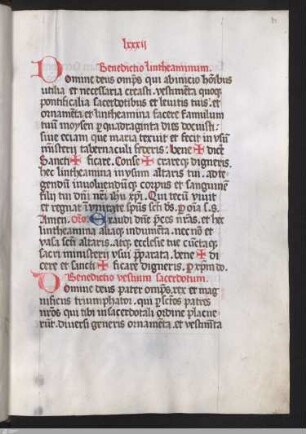 lxxxii
Benedictio lintheaminum.
Domine deus omps qui abinicio hoibus
utilia et necessaria creasti. vestimeta quoqȝ
pontificalia sacerdotibus et leuitis tuis. et
ornameta et lintheamina facere famulum
tuum moysen p quadraginta dies docuisti.
siue eciam que maria texuit et fecit in vsum
misterij tabernaculi federis. bene ✠ dicere
sancti ✠ ficare. conse ✠ crareqȝ digneris.
hec lintheamina in vsum altaris tui. ad te
gendum inuoluendumqȝ corpus et sanguine
filij tui dni nri ihu xpi. Qui tecu viuit
et regnat in vnitate spus sci ds. p oia s. s.
Amen. Oro. Exaudi dne pces nras. et hec
lintheamina aliaqȝ indumeta. nec no et
vasa sacri altaris. atqȝ ecclesie tue cuctaqȝ
sacri ministerij vsui pparata. bene ✠ di
cere et sancti ✠ ficare digneris. p xpm do.
Benedictio vestium sacerdotum.
Domine deus pater omps. rex et mag
nificus triumphator. qui p sctos patres
nros qui tibi in sacerdotali ordine placue
rut. diuersi generis ornameta. et vestimeta